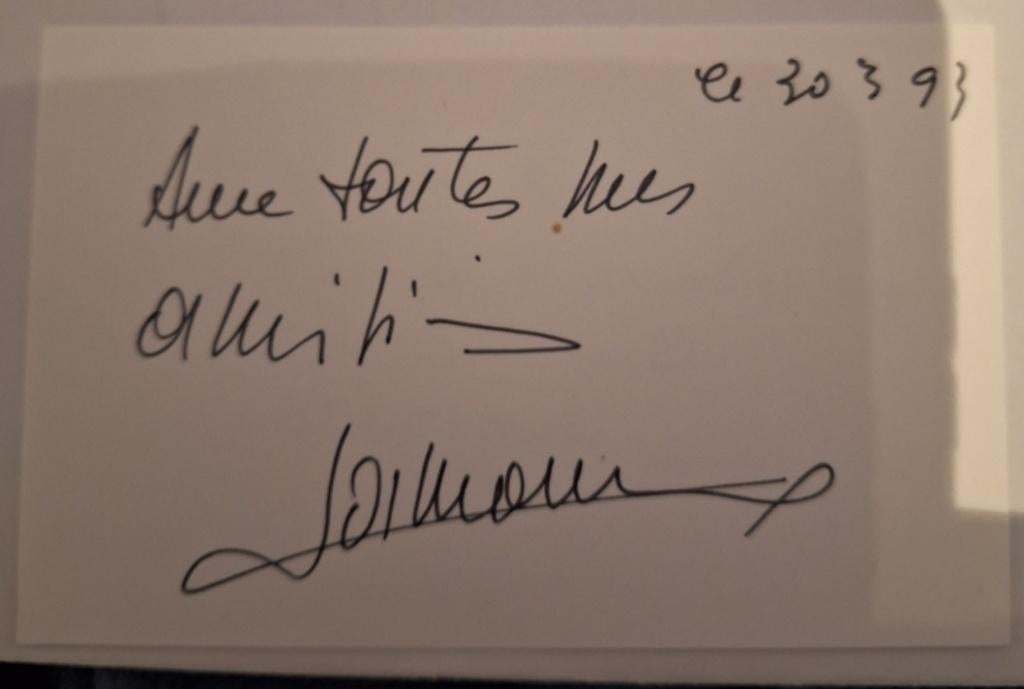 le 30 3 93
Avec toutes mes
amitiés